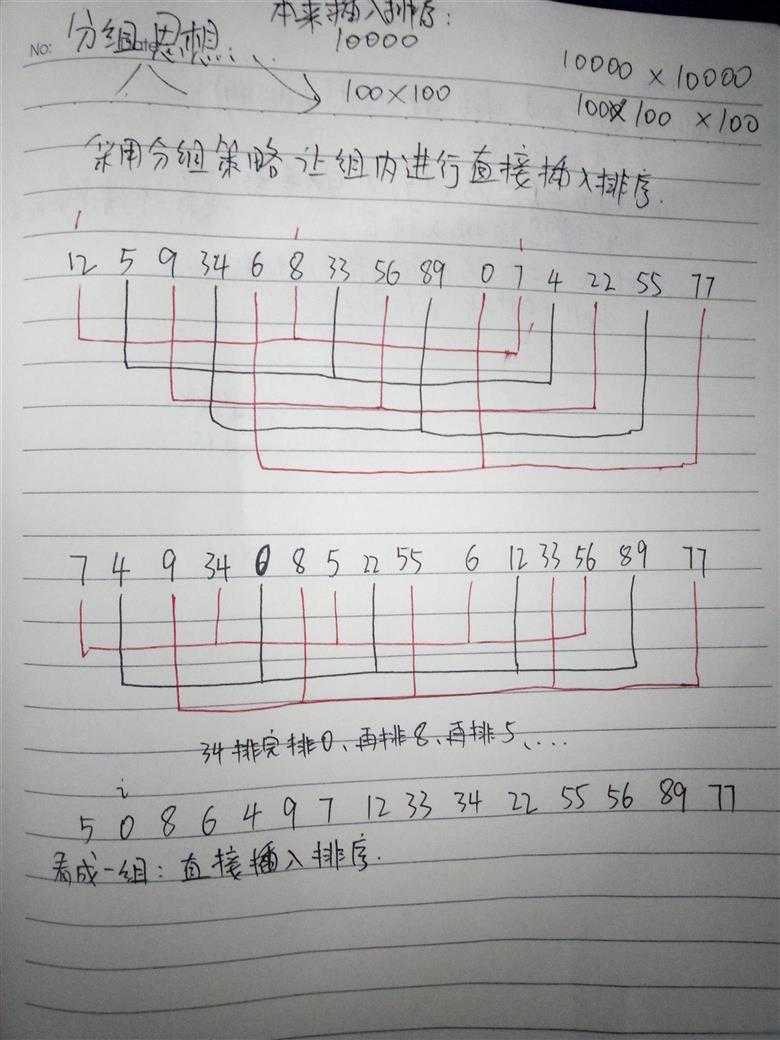 本来插入排序:
No: 分组思想:
10000
10000 × 10000
100×100
100×100 ×100
采用分组策略让组内进行直接插入排序.
12 5 9 34 6 8 33 56 89 0 7 4 22 55 77
7 4 9 34 0 8 5 22 55 6 12 33 56 89 77
34排完排0、再排8、再排5、....
i
5 0 8 6 4 9 7 12 33 34 22 55 56 89 77
看成一组:直接插入排序.